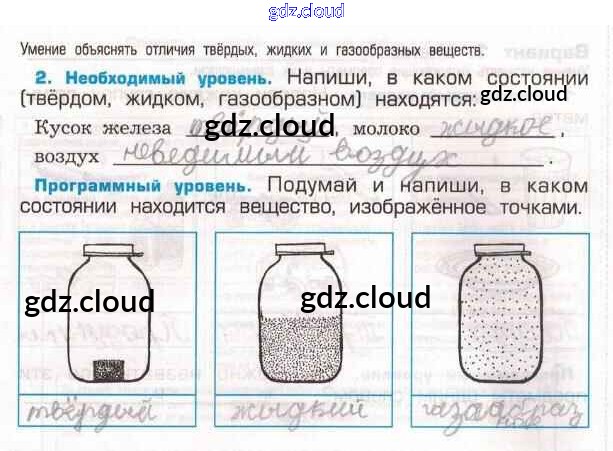 gdz.cloud
Умение объяснять отличия твёрдых, жидких и газообразных веществ.
2. Необходимый уровень. Напиши, в каком состоянии
(твёрдом, жидком, газообразном) находятся: gdz.cloud
Кусок железа твёрдый, молоко жыдкое,
gdz.cloud
воздух невидимый воздух.
Программный уровень. Подумай и напиши, в каком
состоянии находится вещество, изображённое точками.
gdz.cloud gdz.cloud
твёрдый жыдкий газаобраз